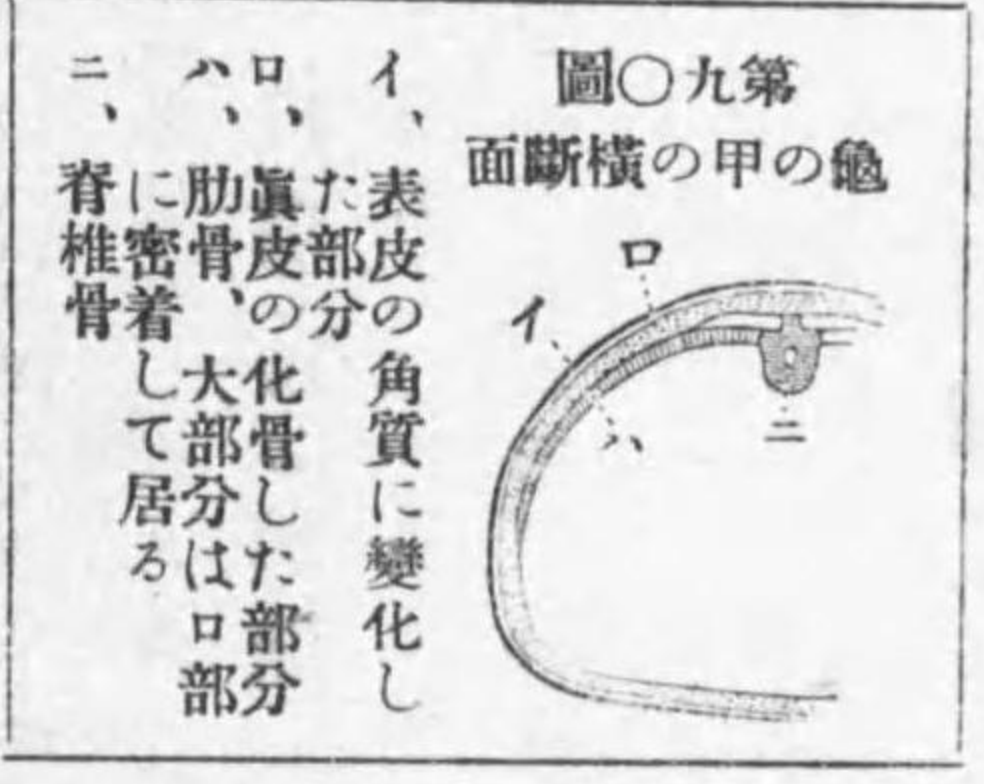 第九〇圖
龜の甲の橫斷面
ロ
イ
ハ
ニ
イ、表皮の角質に變化し
た部分
ロ、眞皮の化骨した部分
ハ、肋骨、大部分はロ部
に密着して居る
ニ、脊椎骨